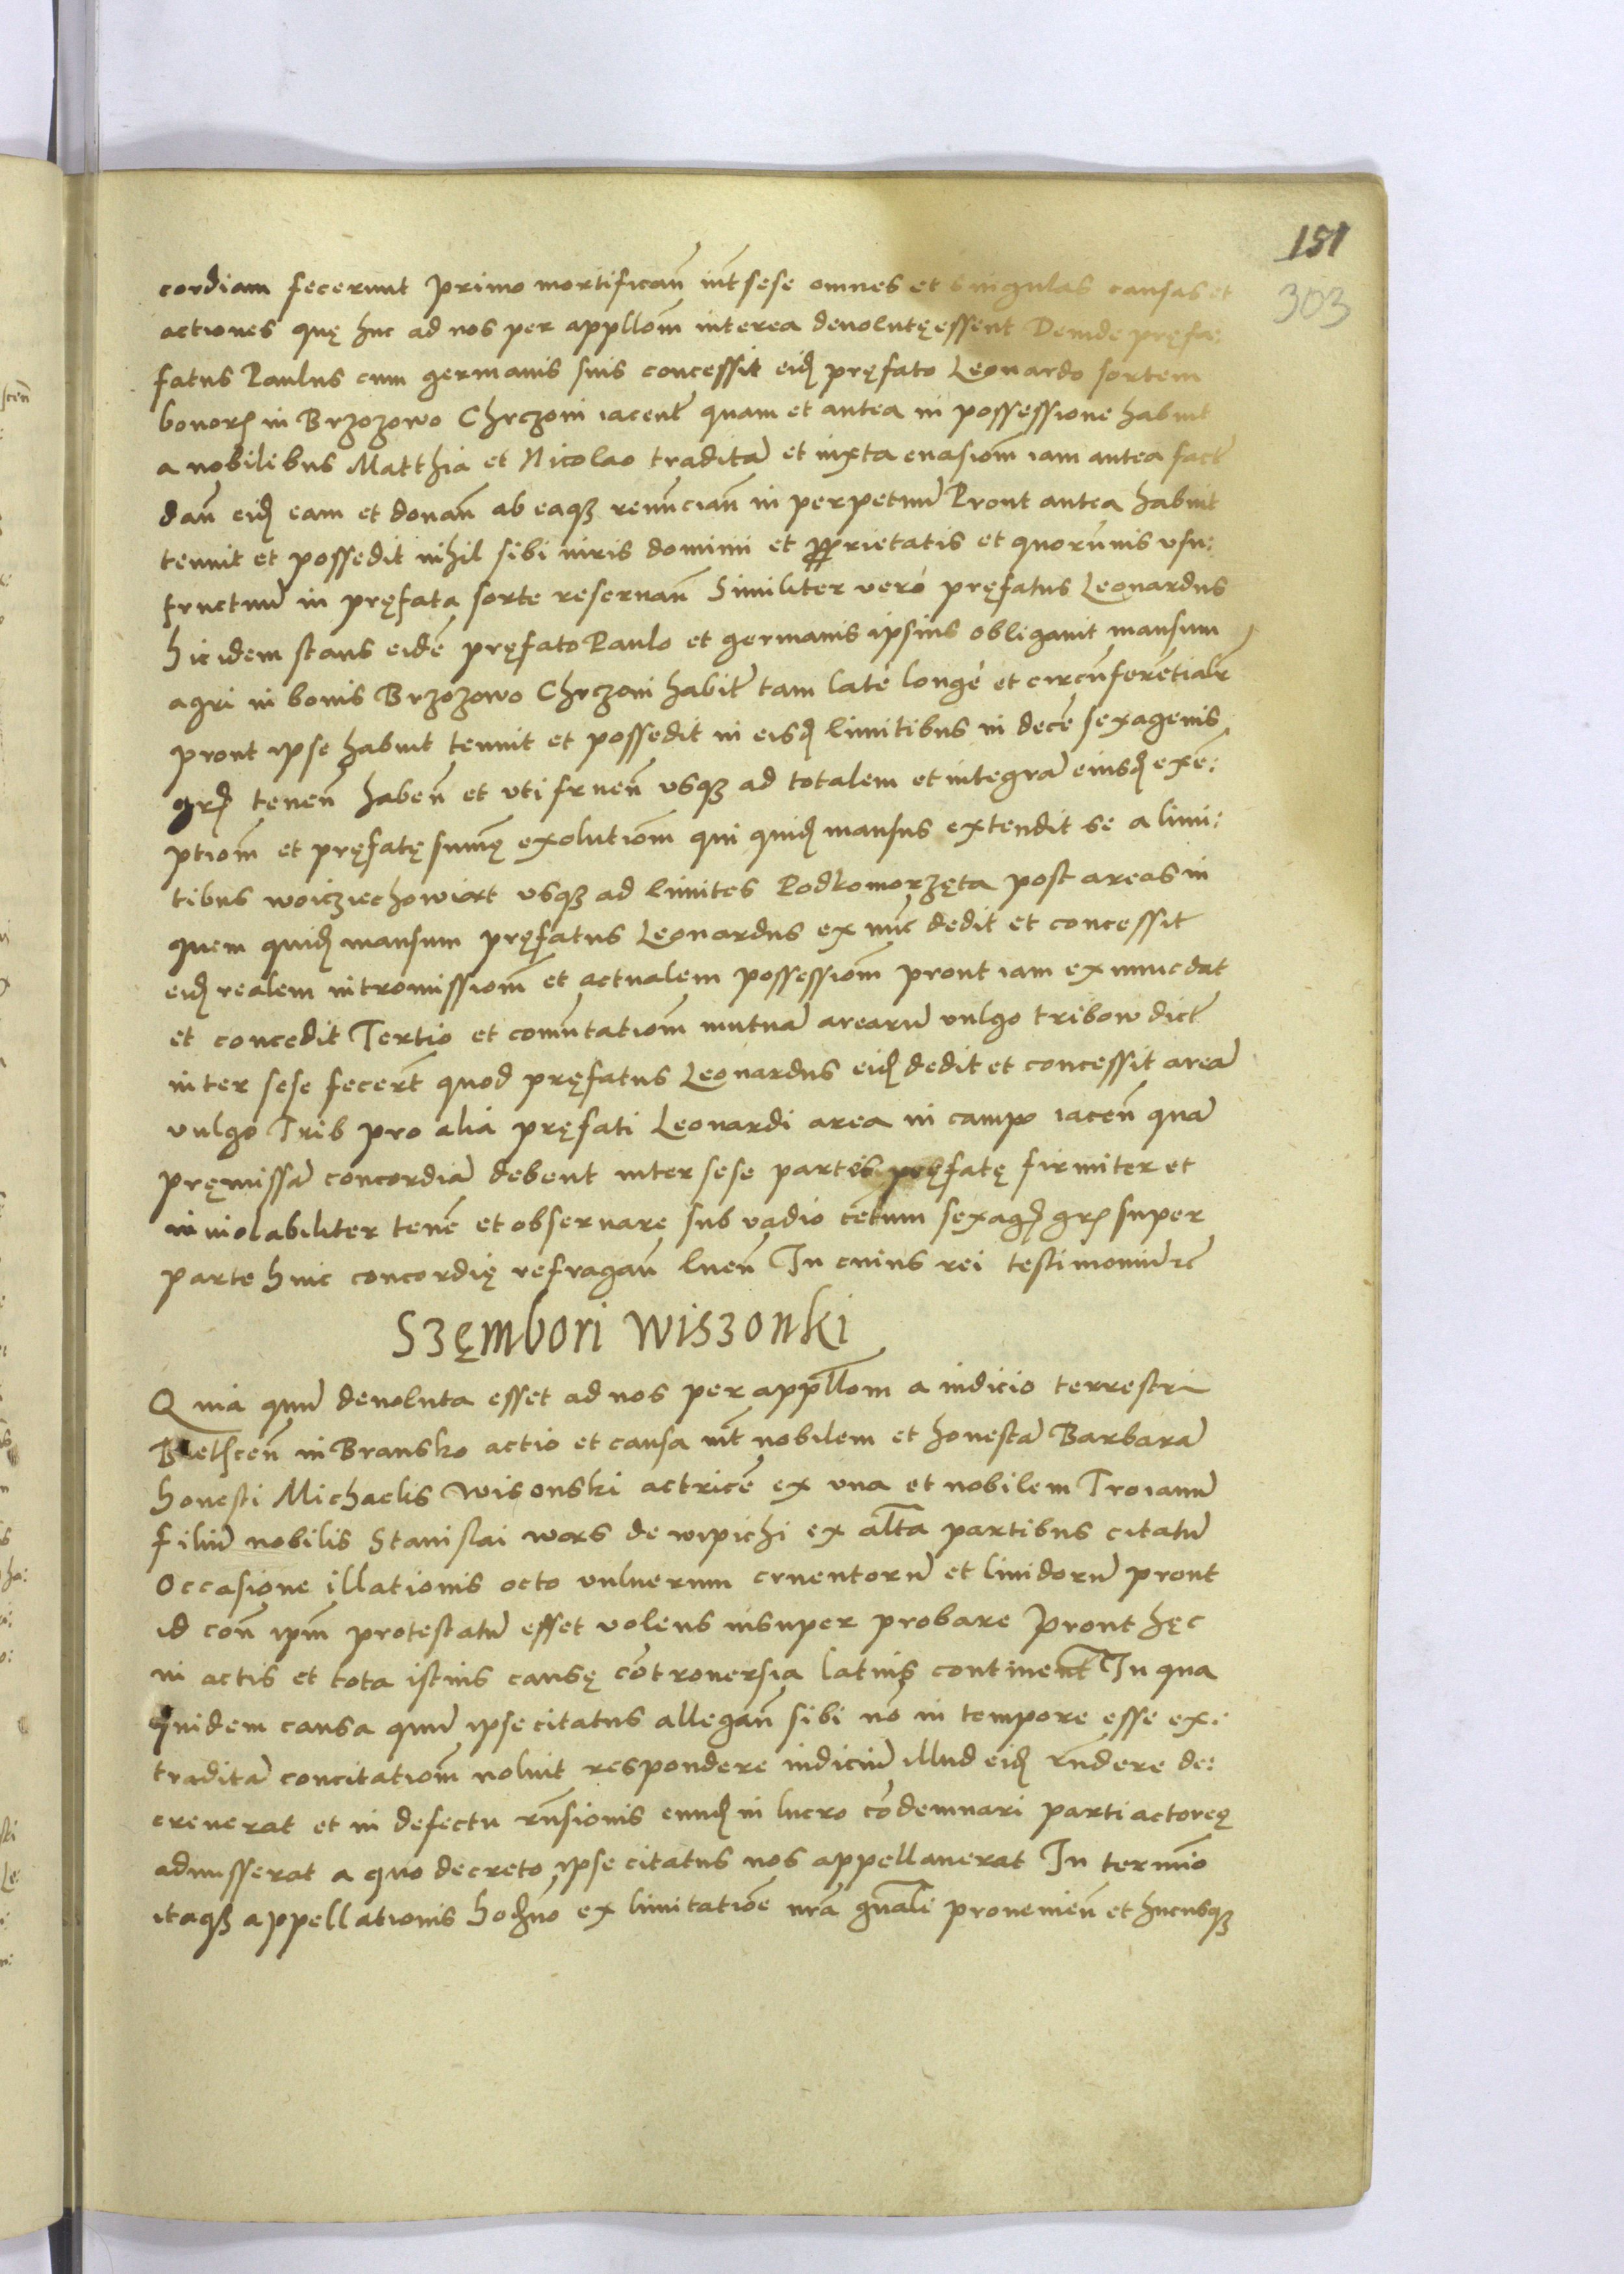 151
303
cordiam fecerunt Primo mortifican̄ int̄ sese omnes et singulas causas et
actiones quę huc ad nos per appllom̄ interea deuolutę essent Deinde pręfa:
fatus Paulus cum germanis suis concessit eid pręfato Leonardo sortem
bonor in Brzozowo Chrczoni iacent̄ quam et antea in possessione habuit
a nobilibus Matthia et Nicolao traditā et iuxta euasiom̄ iam antea fact̄
dan̄ eid eam et donan̄ ab eaqz renuncian̄ in perpetuū Prout antea habuit
tenuit et possedit nihil sibi iuris dominii et pprietatis et quorūuis vsu:
fructuū in pręfata sorte reseruan̄ Similiter verò pręfatus Leonardus
hic idem stans eidē pręfato Paulo et germanis ipsius obligauit mansum
agri in bonis Brzozowo Chrczoni habit̄ tam latè longè et circūferētialr̄
prout ipse habuit tenuit et possedit in eisd limitibus in decē sexagenis
gr tenen̄ haben̄ et vti fruen̄ vsqz ad totalem et integrā eiusd exē:
ptiom̄ et pręfatę sumę exolutiom̄ qui quid mansus extendit se a limi:
tibus woicziechowiat vsqz ad limites Podkomorzęta post areas in
quem quid mansum pręfatus Leonardus ex nūc dedit et concessit
eid realem intromissiom̄ et actualem possessiom̄ prout iam ex nunc dat
et concedit Tertio et comūtatiom̄ mutuā arearū vulgo tribow dict̄
inter sese fecert̄ quod pręfatus Leonardus eid dedit et concessit areā
vulgo Trib pro alia pręfati Leonardi area in campo iacen̄ quā
pręmissā concordiā debent inter sese partes pręfatę firmiter et
inuiolabiliter tenē et obseruare sub vadio cētum sexag gr super
parte huic concordię refragan̄ luen̄ In cuius rei testimoniū etc̄
Szęmbori Wiszonki
Quia quū deuoluta esset ad nos per appllom̄ a iudicio terrestri
Bielscen̄ in Bransko actio et causa int̄ nobilem et honestā Barbarā
honesti Michaelis Wisonski actricē ex vna et nobilem Troianū
filiū nobilis Stanislai wors de wipichi ex altā partibus citatū
Occasione illationis octo vulnerum cruentorū et liuidorū prout
id con̄ ipm̄ protestatū esset volens insuper probare Prout hęc
in actis et tota istius causę cōtrouersia latius continent̄ In qua
quidem causa quū ipse citatus allegan̄ sibi nō in tempore esse ex:
traditā concitatiom̄ noluit respondere iudiciū illud eid rn̄dere de:
creuerat et in defectu rn̄sionis eund in lucro cōdemnari parti actoreę
admisserat a quo decreto ipse citatus nos appellauerat In termīo
itaqz appellationis hodierno ex limitatiōe nrā gnāli prouenien̄ et hucusqz